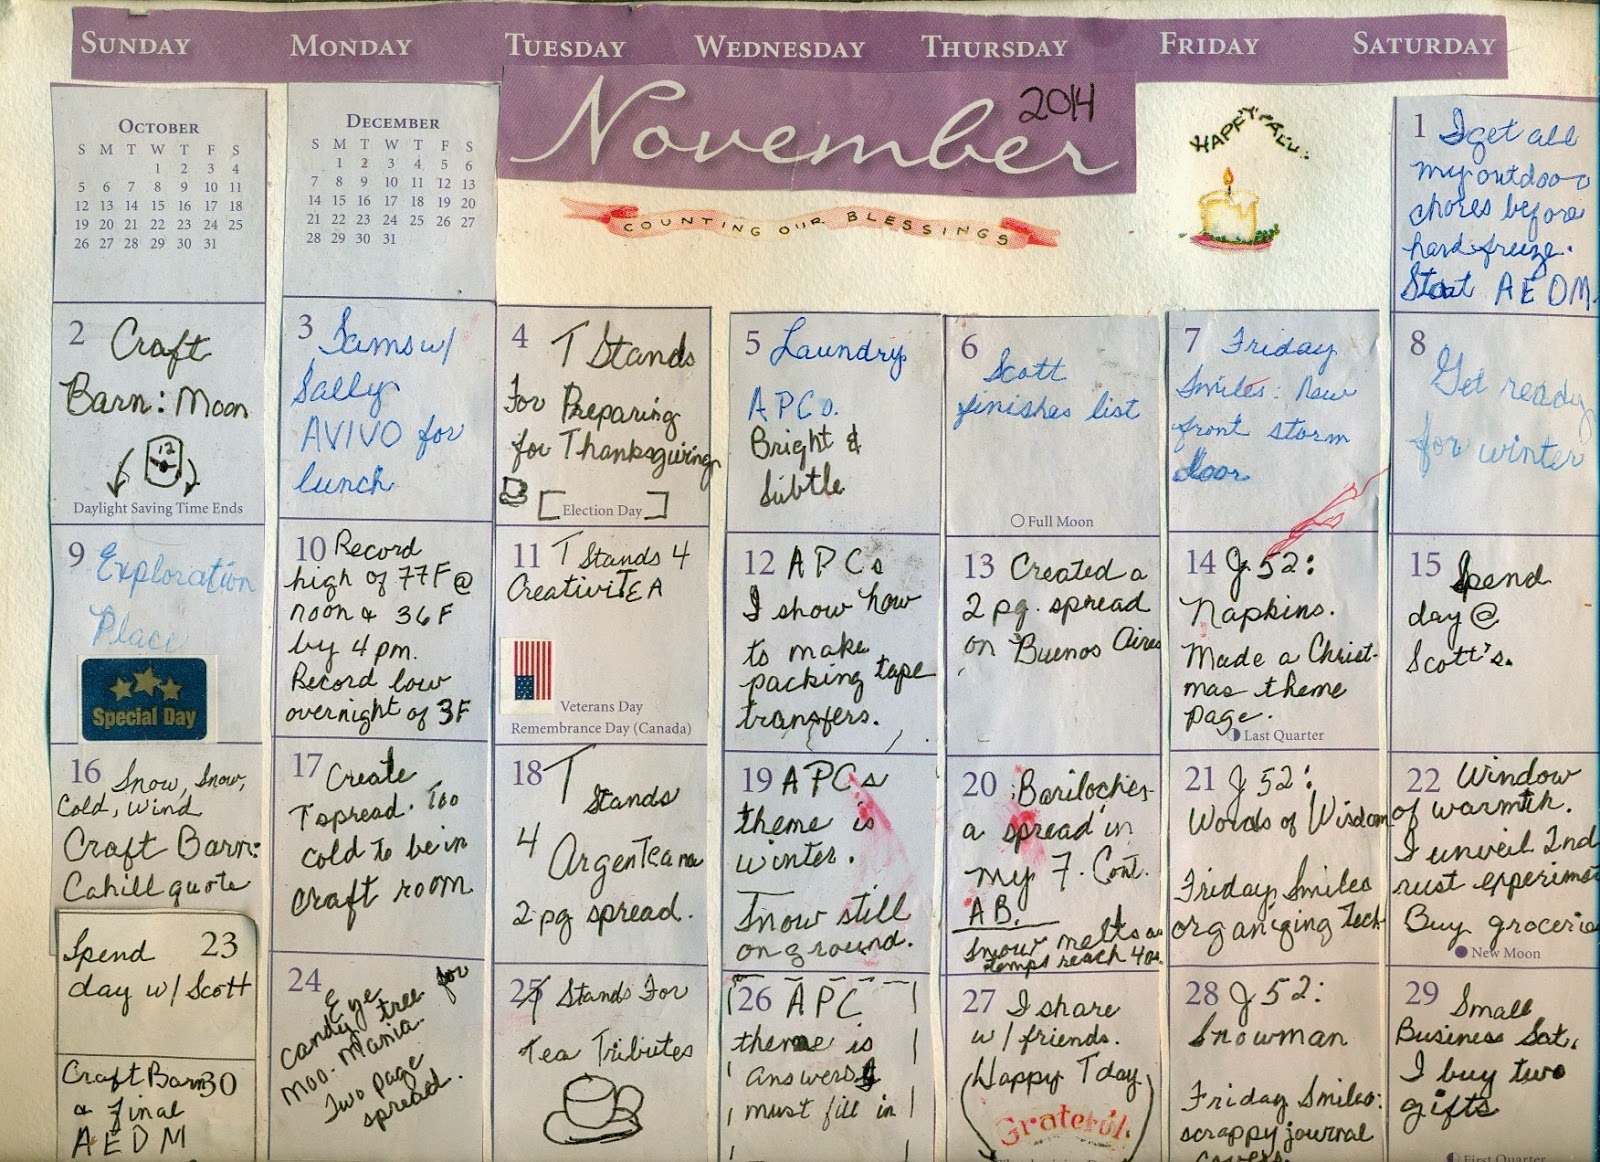 SUNDAY MONDAY TUESDAY WEDNESDAY THURSDAY FRIDAY SATURDAY
November 2014
COUNTING OUR BLESSINGS
HAPPY FALL
OCTOBER
S M T W T F S
1 2 3 4
5 6 7 8 9 10 11
12 13 14 15 16 17 18
19 20 21 22 23 24 25
26 27 28 29 30 31
DECEMBER
S M T W T F S
1 2 3 4 5 6
7 8 9 10 11 12 13
14 15 16 17 18 19 20
21 22 23 24 25 26 27
28 29 30 31
1 I get all
my outdoor
chores before
hard freeze.
Start AEDM
2 Craft
Barn: Moon
12
Daylight Saving Time Ends
3 Sams w/
Sally
AVIVO for
lunch
4 T Stands
For Preparing
for Thanksgiving
[Election Day]
5 Laundry
APCs.
Bright &
Subtle
6
Scott
finishes list
Full Moon
7 Friday
Smiles: New
front storm
door
8
Get ready
for winter
9 Exploration
Place
Special Day
10 Record
high of 77F @
noon & 36F
by 4 pm.
Record low
overnight of 3F
11 T Stands 4
CreativiTEA
Veterans Day
Remembrance Day (Canada)
12 APCs
I show how
to make
packing tape
transfers.
13 Created a
2 pg. spread
on Buenos Aires
14 J52:
Napkins.
Made a Christ-
mas theme
page.
Last Quarter
15 Spend
day @
Scott's.
16 Snow, Snow,
Cold, Wind
Craft Barn:
Cahill quote
17 Create
T spread. Too
cold to be in
craft room
18 T
Stands
4
ArgenTea na
2 pg spread.
19 APCs
theme is
winter.
Snow still
on ground.
20 Bariloche-
a spread in
my 7. Cont.
AB.
Snow melts as
temps reach 40s.
21 J52:
Words of Wisdom
Friday Smiles
organizing tech
22 Window
of warmth.
I unveil 2nd
rust experiment
Buy groceries
New Moon
Spend 23
day w/ Scott
24
Eye
Candy tree for
Moo. Mania.
Two page
spread.
25 T Stands For
Tea Tributes
26 APC
theme is
answers
must fill in
27 I share
w/ friends.
Happy T day
Grateful
28 J52:
Snowman
Friday Smiles:
scrappy journal
covers.
29 Small
Business Sat.
I buy two
gifts
First Quarter
Craft Barn 30
& final
AEDM